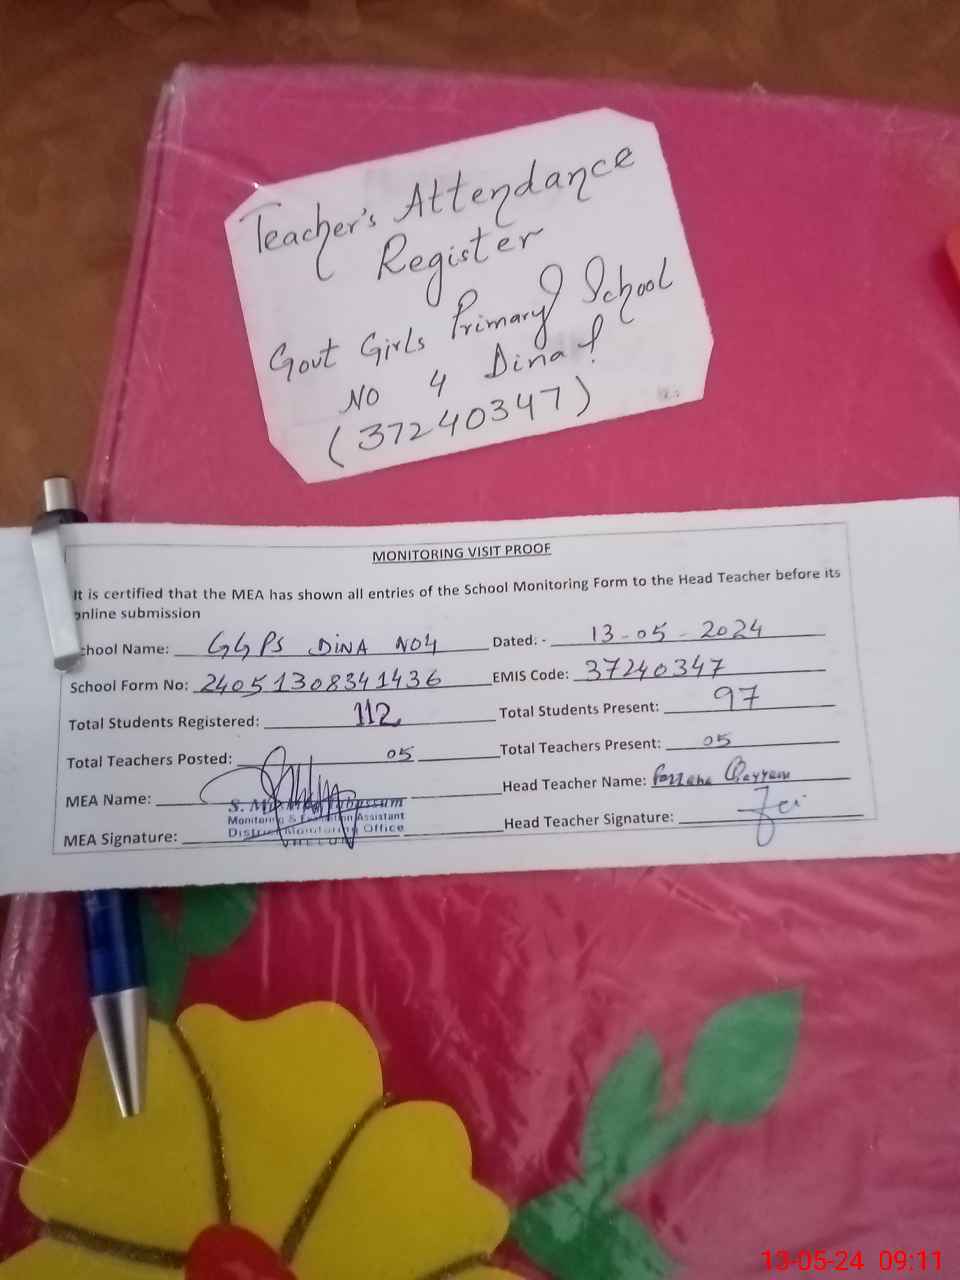 Teacher's Attendance
Register
Govt Girls Primary School
NO 4 Dina
(37240347)
MONITORING VISIT PROOF
It is certified that the MEA has shown all entries of the School Monitoring Form to the Head Teacher before its
online submission
School Name: GGPS DINA NO4 Dated: - 13-05-2024
School Form No: 24051308341436 EMIS Code: 37240347
Total Students Registered: 112 Total Students Present: 97
Total Teachers Posted: 05 Total Teachers Present: 05
MEA Name: Head Teacher Name:
S.
Monitoring & Evaluation Assistant
District Monitoring Office
MEA Signature: Head Teacher Signature:
13-05-24 09:11